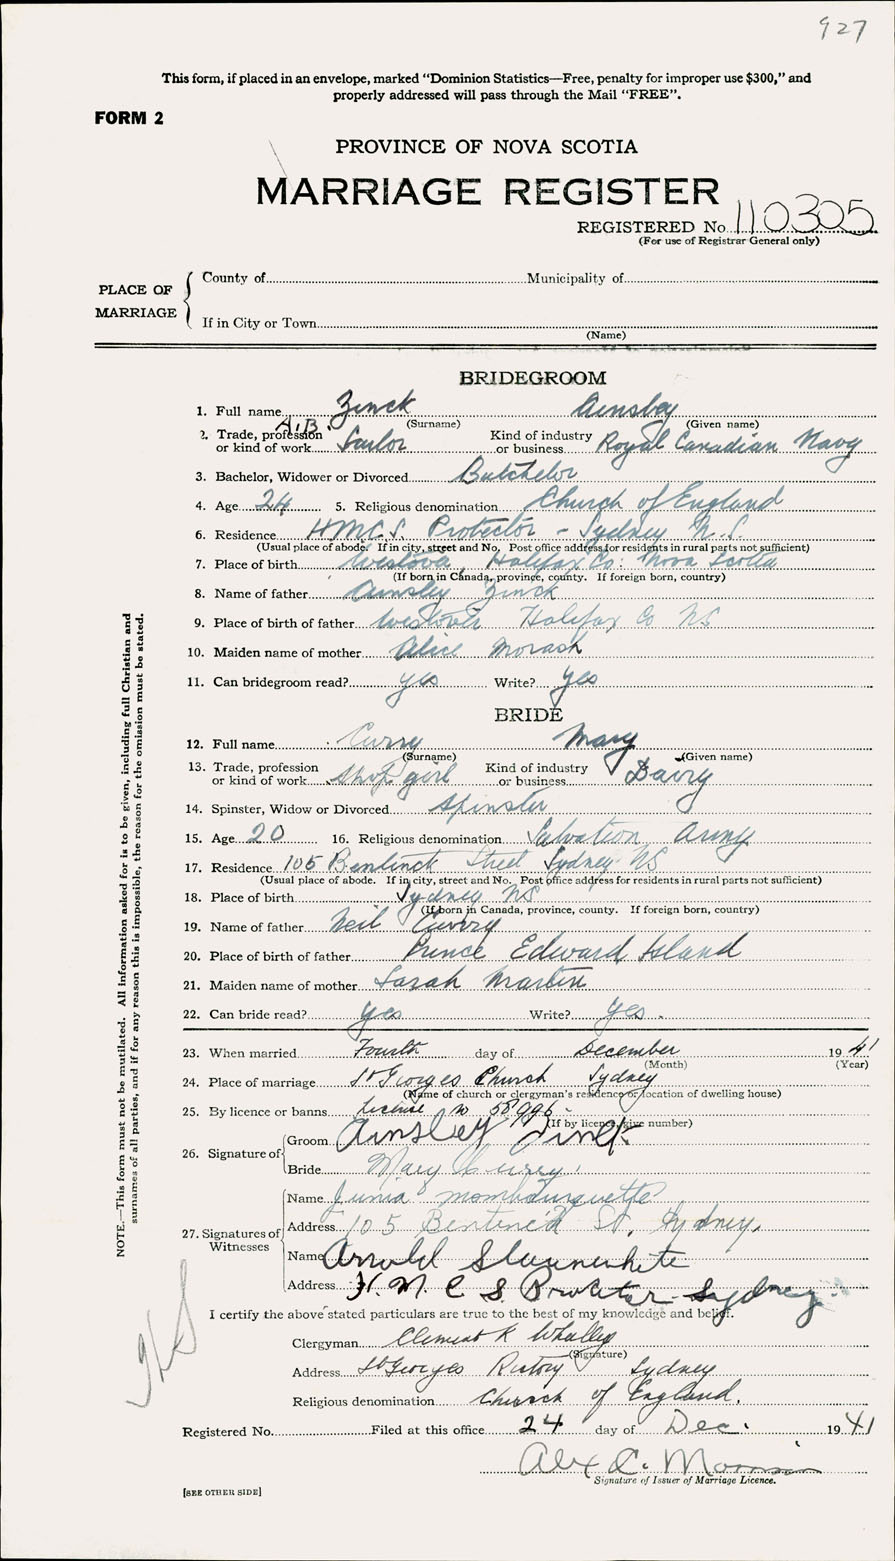 927
This form, if placed in an envelope, marked "Dominion Statistics—Free, penalty for improper use $300," and
properly addressed will pass through the Mail "FREE".
FORM 2
PROVINCE OF NOVA SCOTIA
MARRIAGE REGISTER
REGISTERED No. 110305
(For use of Registrar General only)
PLACE OF MARRIAGE
County of Municipality of
If in City or Town
(Name)
BRIDEGROOM
1. Full name Zinck Ainsley
(Surname) (Given name)
A.B.
2. Trade, profession or kind of work Sailor Kind of industry or business Royal Canadian Navy
3. Bachelor, Widower or Divorced Batchelor
4. Age 24 5. Religious denomination Church of England
6. Residence HMCS. Protector - Sydney N.S.
(Usual place of abode. If in city, street and No. Post office address for residents in rural parts not sufficient)
7. Place of birth Halifax Co: Nova Scotia
(If born in Canada, province, county. If foreign born, country)
8. Name of father Ainsley Zinck
9. Place of birth of father Halifax Co NS
10. Maiden name of mother Alice Morash
11. Can bridegroom read? yes Write? yes
BRIDE
12. Full name Curry Mary
(Surname) (Given name)
13. Trade, profession or kind of work Shop girl Kind of industry or business Dairy
14. Spinster, Widow or Divorced Spinster
15. Age 20 16. Religious denomination Salvation Army
17. Residence 105 Bentinck Street Sydney NS
(Usual place of abode. If in city, street and No. Post office address for residents in rural parts not sufficient)
18. Place of birth Sydney NS
(If born in Canada, province, county. If foreign born, country)
19. Name of father Neil Curry
20. Place of birth of father Prince Edward Island
21. Maiden name of mother Sarah Martin
22. Can bride read? yes Write? yes.
23. When married Fourth day of December 1941
(Month) (Year)
24. Place of marriage St Georges Church Sydney
(Name of church or clergyman's residence or location of dwelling house)
25. By licence or banns license no
(If by licence, give number)
26. Signature of
Groom Ainsley Zinck
Bride Mary Curry
27. Signatures of Witnesses
Name Junia Mombourquette
Address 105 Bentinck St, Sydney.
Name Arnold Slauenwhite
Address H.M.C.S Protector Sydney
I certify the above stated particulars are true to the best of my knowledge and belief.
Clergyman Clement R Whalley
(Signature)
Address St Georges Rectory Sydney
Religious denomination Church of England.
Registered No. Filed at this office 24 day of Dec. 1941
Alex C. Morrison
Signature of Issuer of Marriage Licence.
[SEE OTHER SIDE]
NOTE.—This form must not be mutilated. All information asked for is to be given, including full Christian and
surnames of all parties, and if for any reason this is impossible, the reason for the omission must be stated.